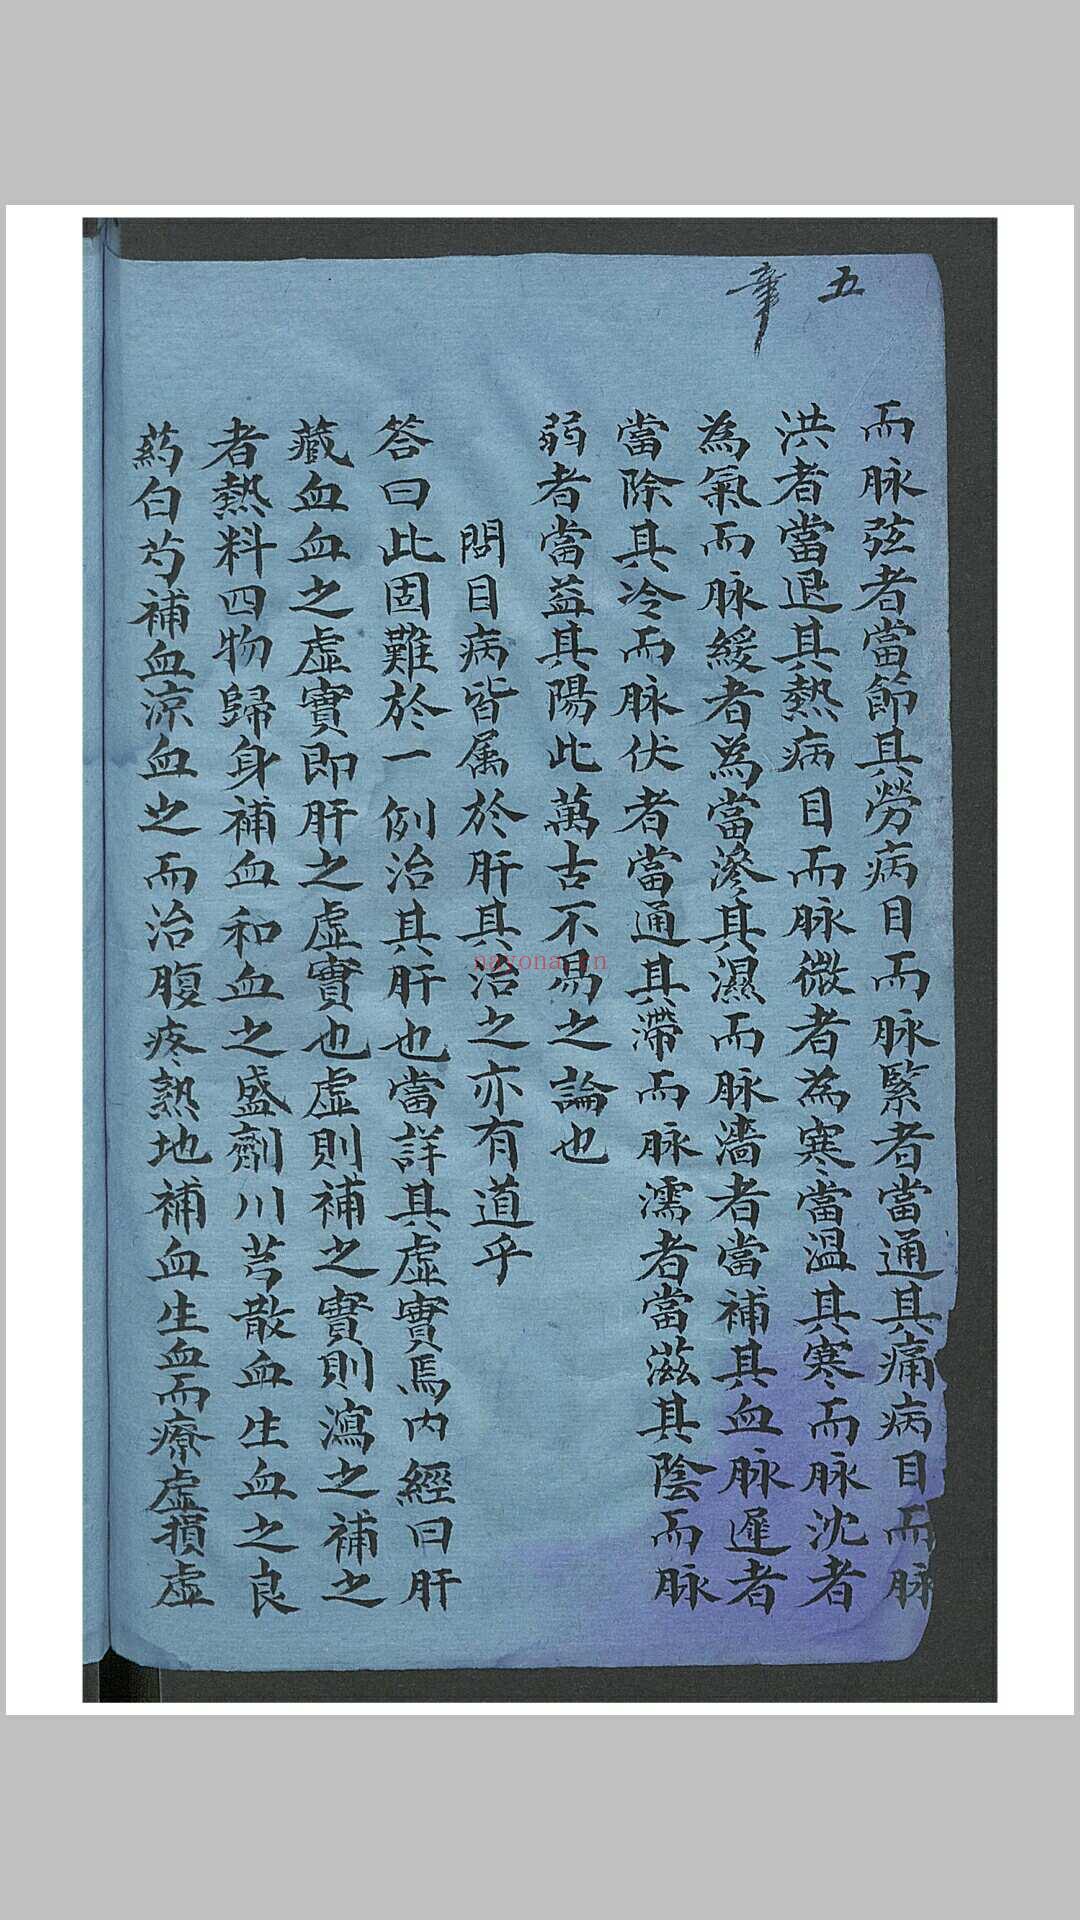 五
章
而脉弦者當節其勞病目而脉緊者當通其痛病目而脉
洪者當退其熱病目而脉微者為寒當温其寒而脉沈者
為氣而脉緩者為當滲其濕而脉濇者當補其血脉遲者
當除其冷而脉伏者當通其滯而脉濡者當滋其陰而脉
弱者當益其陽此萬古不易之論也
問目病皆属於肝其治之亦有道乎
答曰此固難於一例治其肝也當詳其虛實焉内經曰肝
藏血血之虛實即肝之虛實也虛則補之實則瀉之補之
者熱料四物歸身補血和血之盛劑川芎散血生血之良
藥白芍補血凉血之而治腹疼熟地補血生血而療虛損虛
nayona.cn